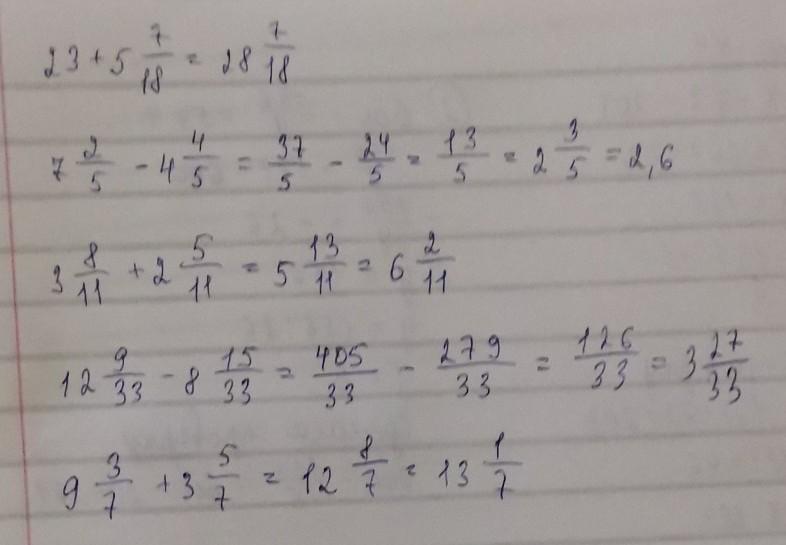 23 + 5 7/18 = 28 7/18
7 2/5 - 4 4/5 = 37/5 - 24/5 = 13/5 = 2 3/5 = 2,6
3 8/11 + 2 5/11 = 5 13/11 = 6 2/11
12 9/33 - 8 15/33 = 405/33 - 279/33 = 126/33 = 3 27/33
9 3/7 + 3 5/7 = 12 8/7 = 13 1/7